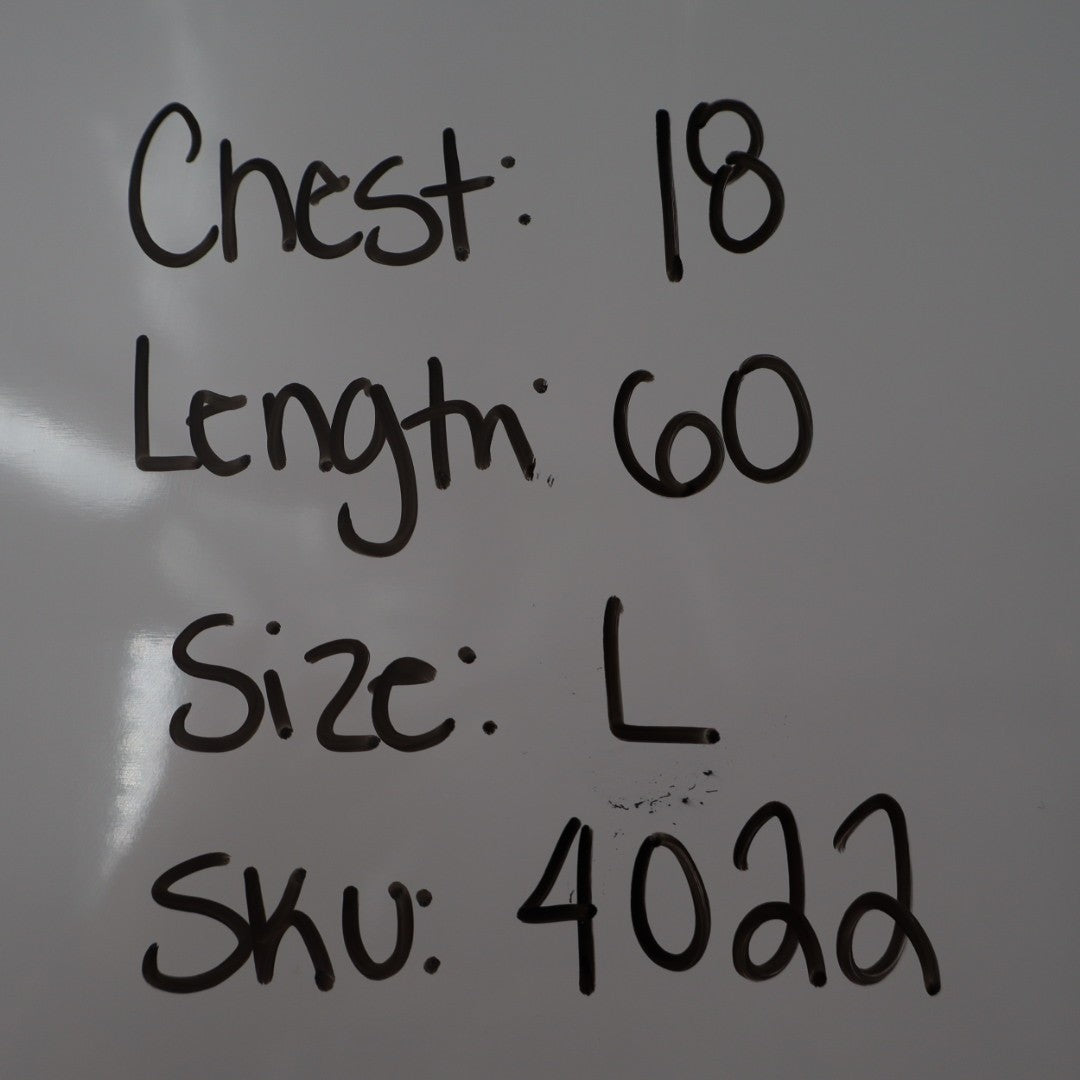 Chest: 18
Length: 60
Size: L
SKU: 4022